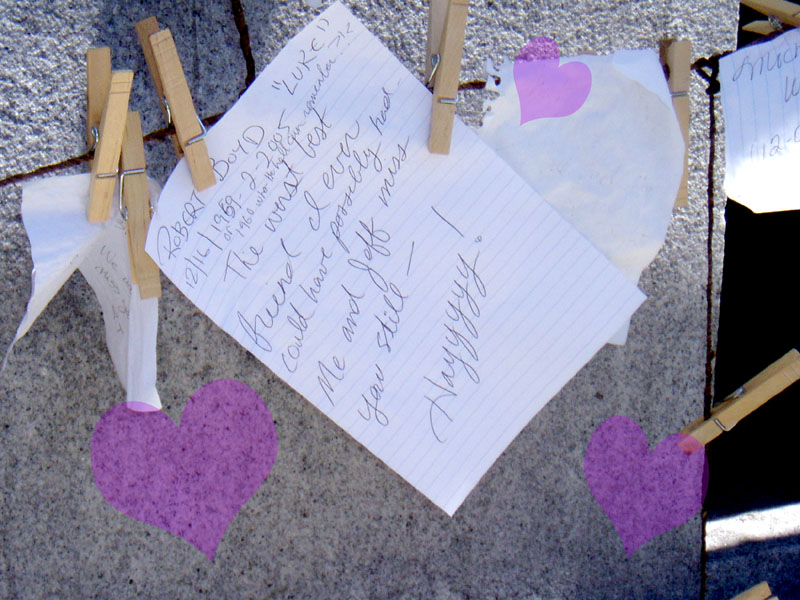 ROBERT BOYD "LUKE"
12/16/1959-2-2-2005
or 1960 who the hell can remember?!?
The worst best
friend I ever
could have possibly had-
Me and Jeff miss
you still —
Hayyyyy. !
We
miss